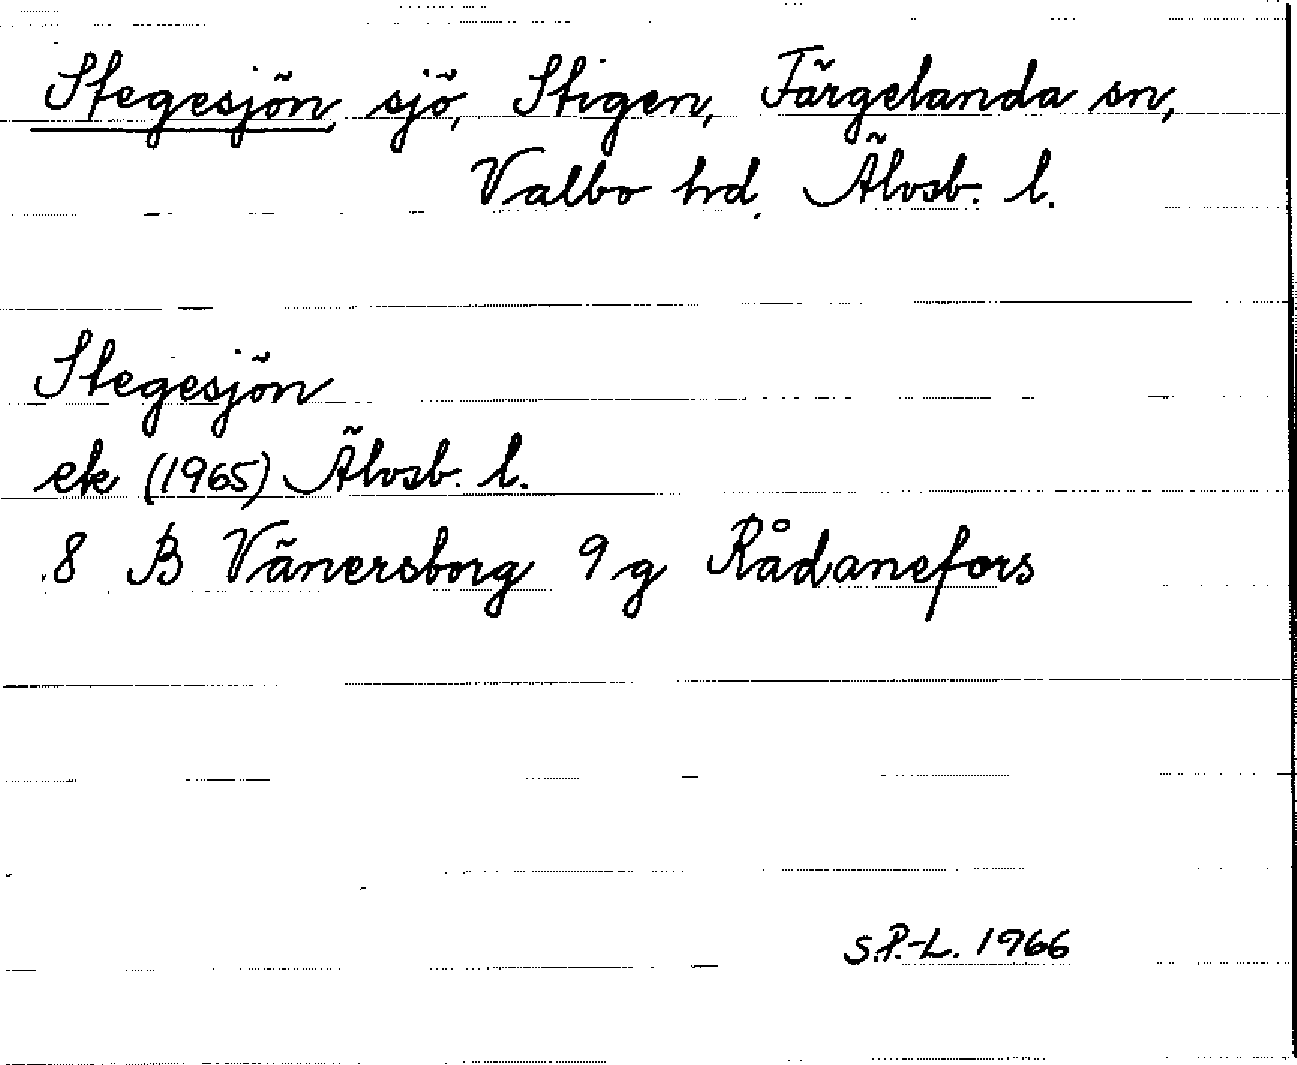 Stegesjön, sjö, Stigen, Färgelanda sn,
Valbo hd. Älvsb. l.
Stegesjön
ek (1965) Älvsb. l.
8 B Vänersborg 9 g Rådanefors
S.P.-L. 1966